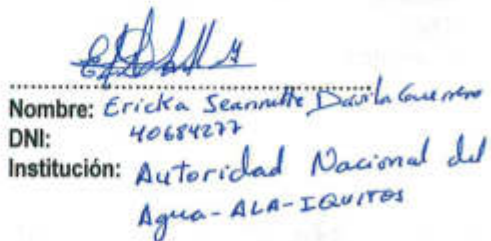 Nombre: Ericka Seannette Davila Guerrero
DNI: 40684277
Institución: Autoridad Nacional del
Agua-ALA-IQUITOS